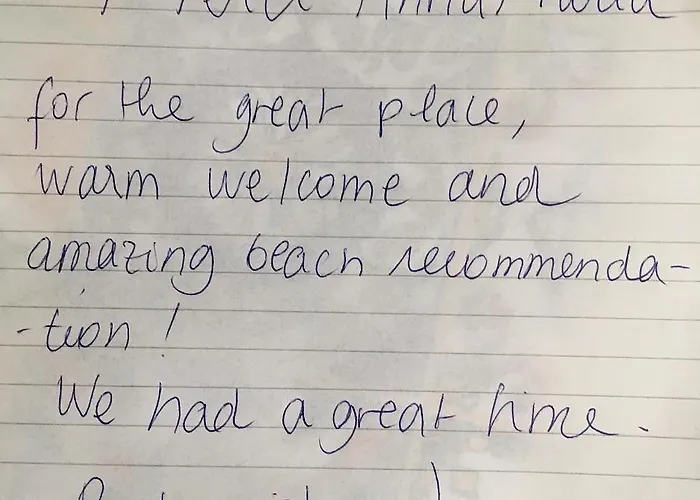 for the great place,
warm welcome and
amazing beach recommenda-
-tion!
We had a great time.